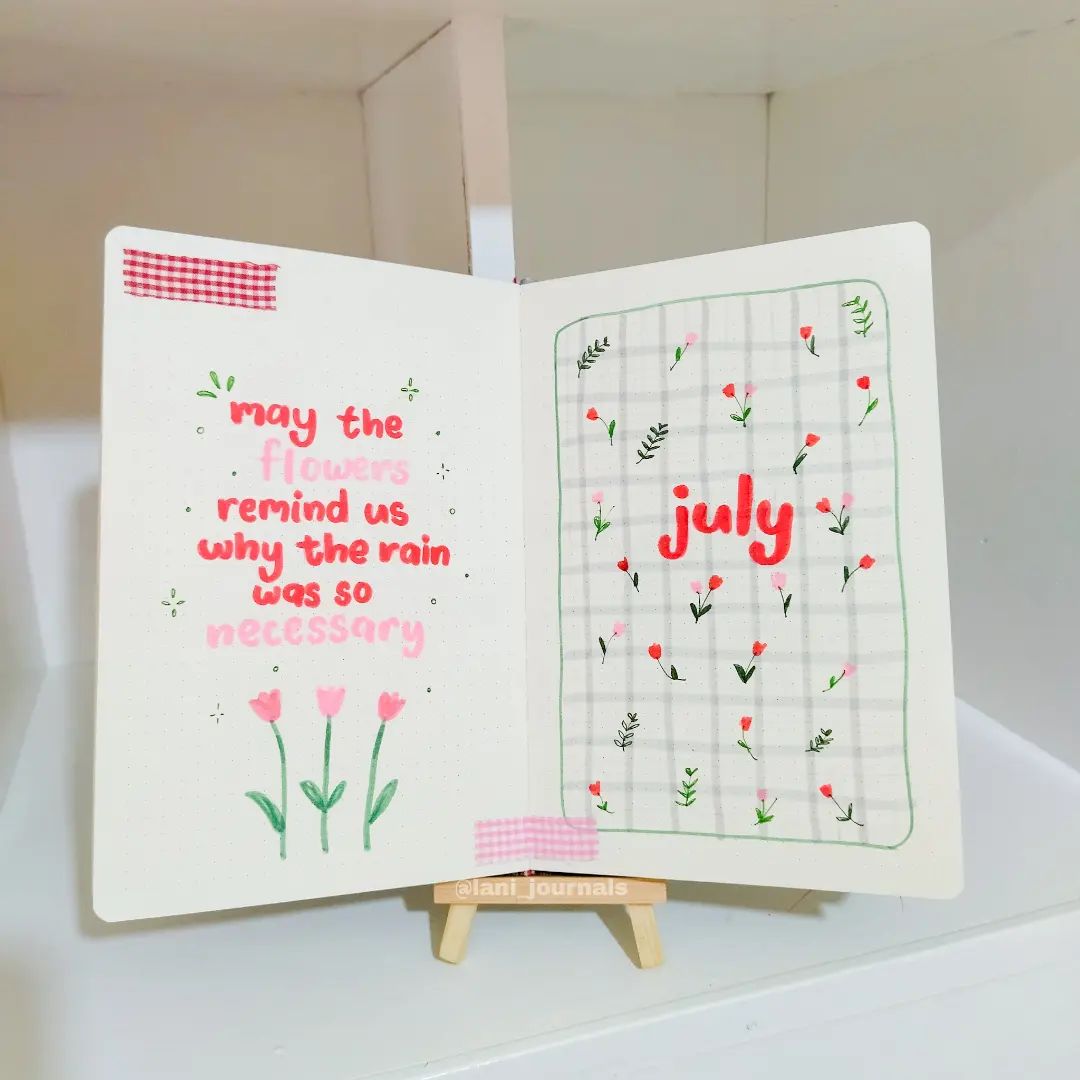 may the
flowers
remind us
why the rain
was so
necessary
july
@lani_journals